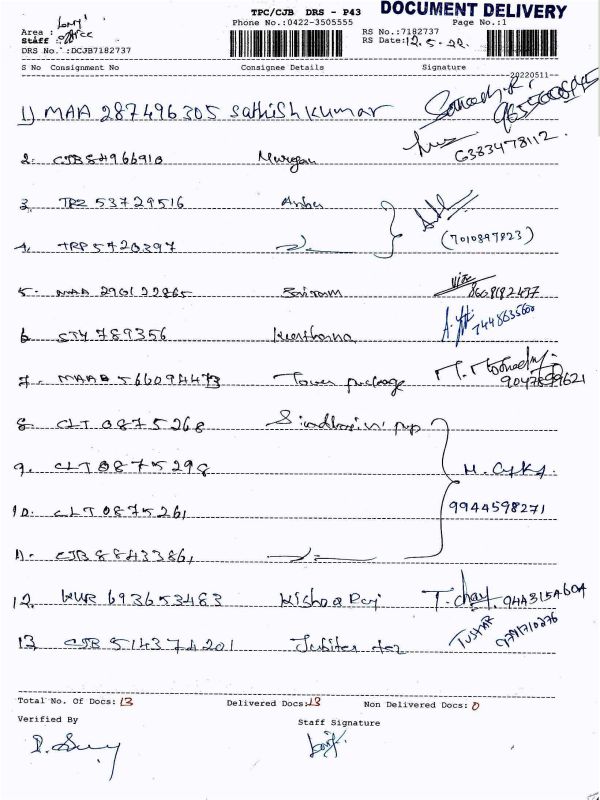 TPC/CJB DRS - P43 DOCUMENT DELIVERY
Phone No.:0422-3505555 Page No.:1
Area :
Staff : office
DRS No.:DCJB7182737
RS No.:7182737
RS Date:12.5.22
S No Consignment No Consignee Details Signature
20220511
1) MAA 287496305 Sathish kumar
2. CJB 84966910 Murgan 6383478112
3. TRZ 53729516 Anbu
4. TRP 5420397 (7010897823)
5. MAA 290122865 Sairam 8608182477
6. STY 789356 Keerthana 7448635600
7. MAAB 566094473 Tower package 9047899621
8. CLT 0875268
9. CLT 0875298
10. CLT 0875261 9944598271
11. CJB 8843386,
12. KUR 693653483 Kishoo Raj
13 CJB 514374201 Jubiter TUSHAR 9791710276
Total No. Of Docs: 13 Delivered Docs: 13 Non Delivered Docs: 0
Verified By Staff Signature